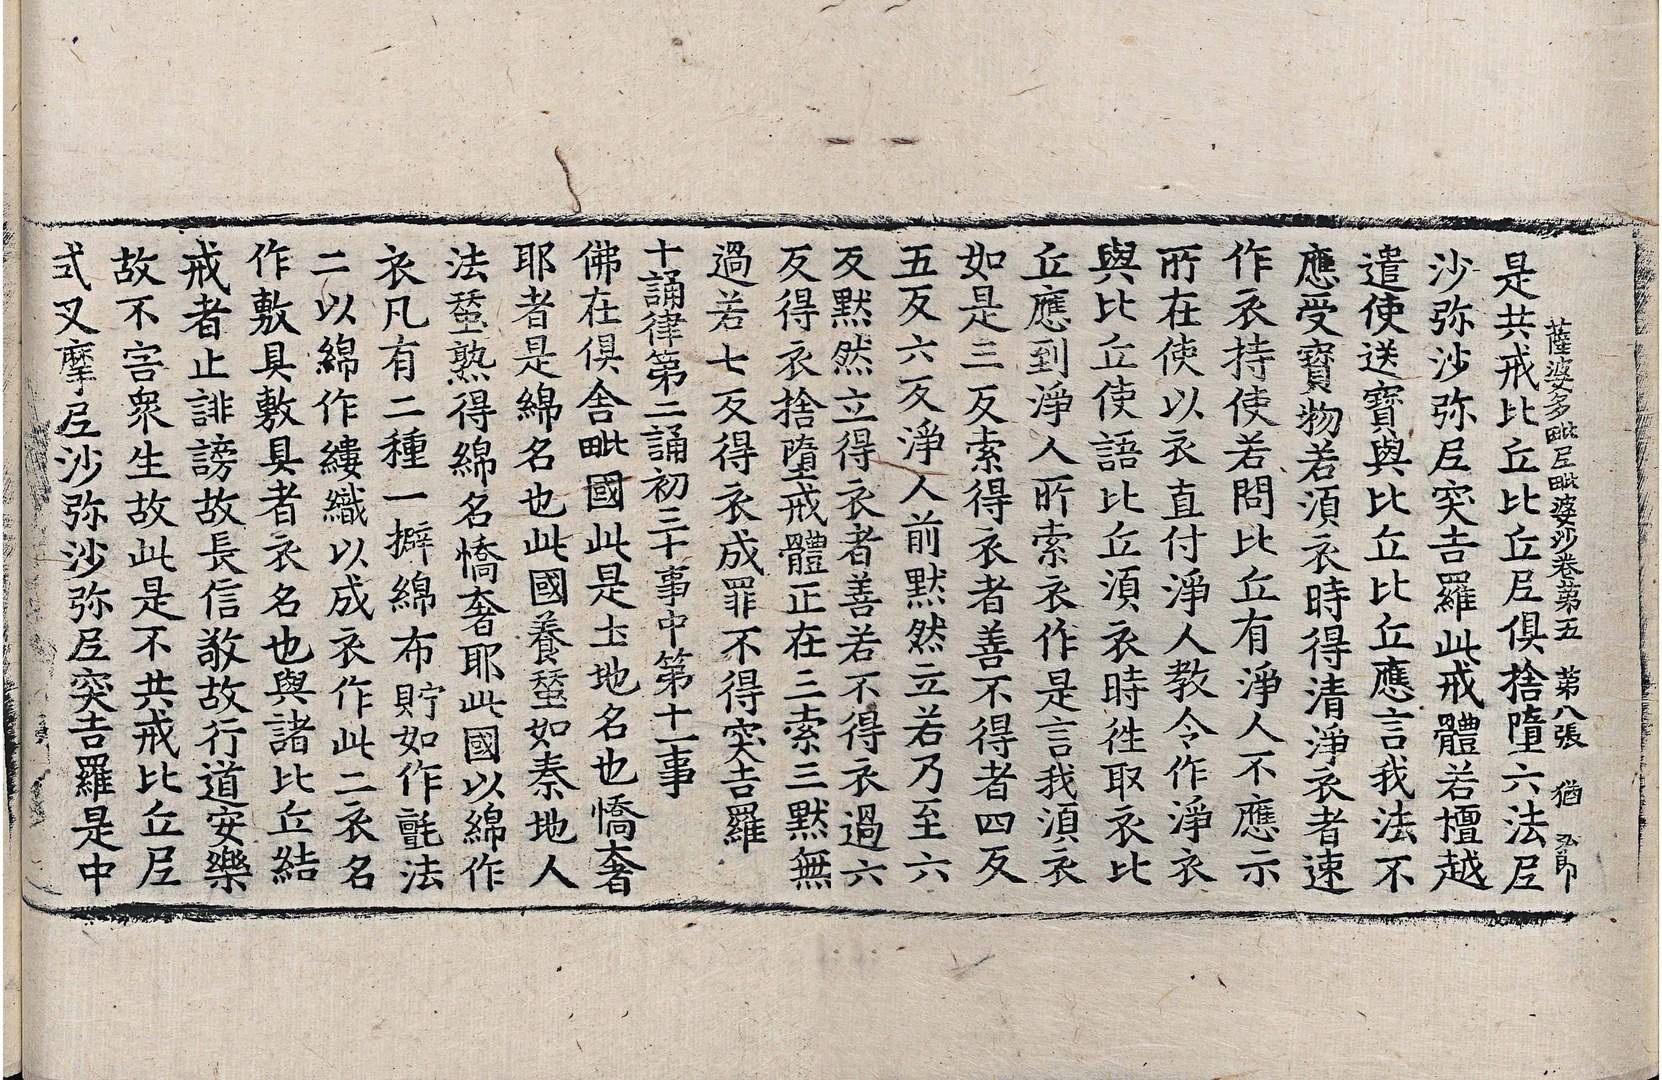 薩婆多毗尼毗婆沙卷第五 第八張 猶
是共戒比丘比丘尼俱捨墮六法尼
沙弥沙弥尼突吉羅此戒體若檀越
遣使送寶與比丘比丘應言我法不
應受寶物若湏衣時得清淨衣者速
作衣持使若問比丘有淨人不應示
所在使以衣直付淨人教令作淨衣
與比丘使語比丘湏衣時徃取衣比
丘應到淨人所索衣作是言我湏衣
如是三反索得衣者善不得者四反
五反六反淨人前默然立若乃至六
反默然立得衣者善若不得衣過六
反得衣捨墮戒體正在三索三默無
過若七反得衣成罪不得突吉羅
十誦律第二誦初三十事中第十一事
佛在俱舍毗國此是土地名也憍奢
耶者是綿名也此國養蚕如秦地人
法蚕熟得綿名憍奢耶此國以綿作
衣凡有二種一擗綿布貯如作氈法
二以綿作縷織以成衣作此二衣名
作敷具敷具者衣名也與諸比丘結
戒者止誹謗故長信敬故行道安樂
故不害衆生故此是不共戒比丘尼
式叉摩尼沙弥沙弥尼突吉羅是中